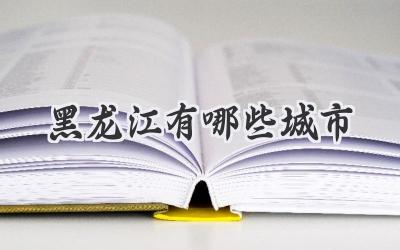 黑龙江有哪些城市